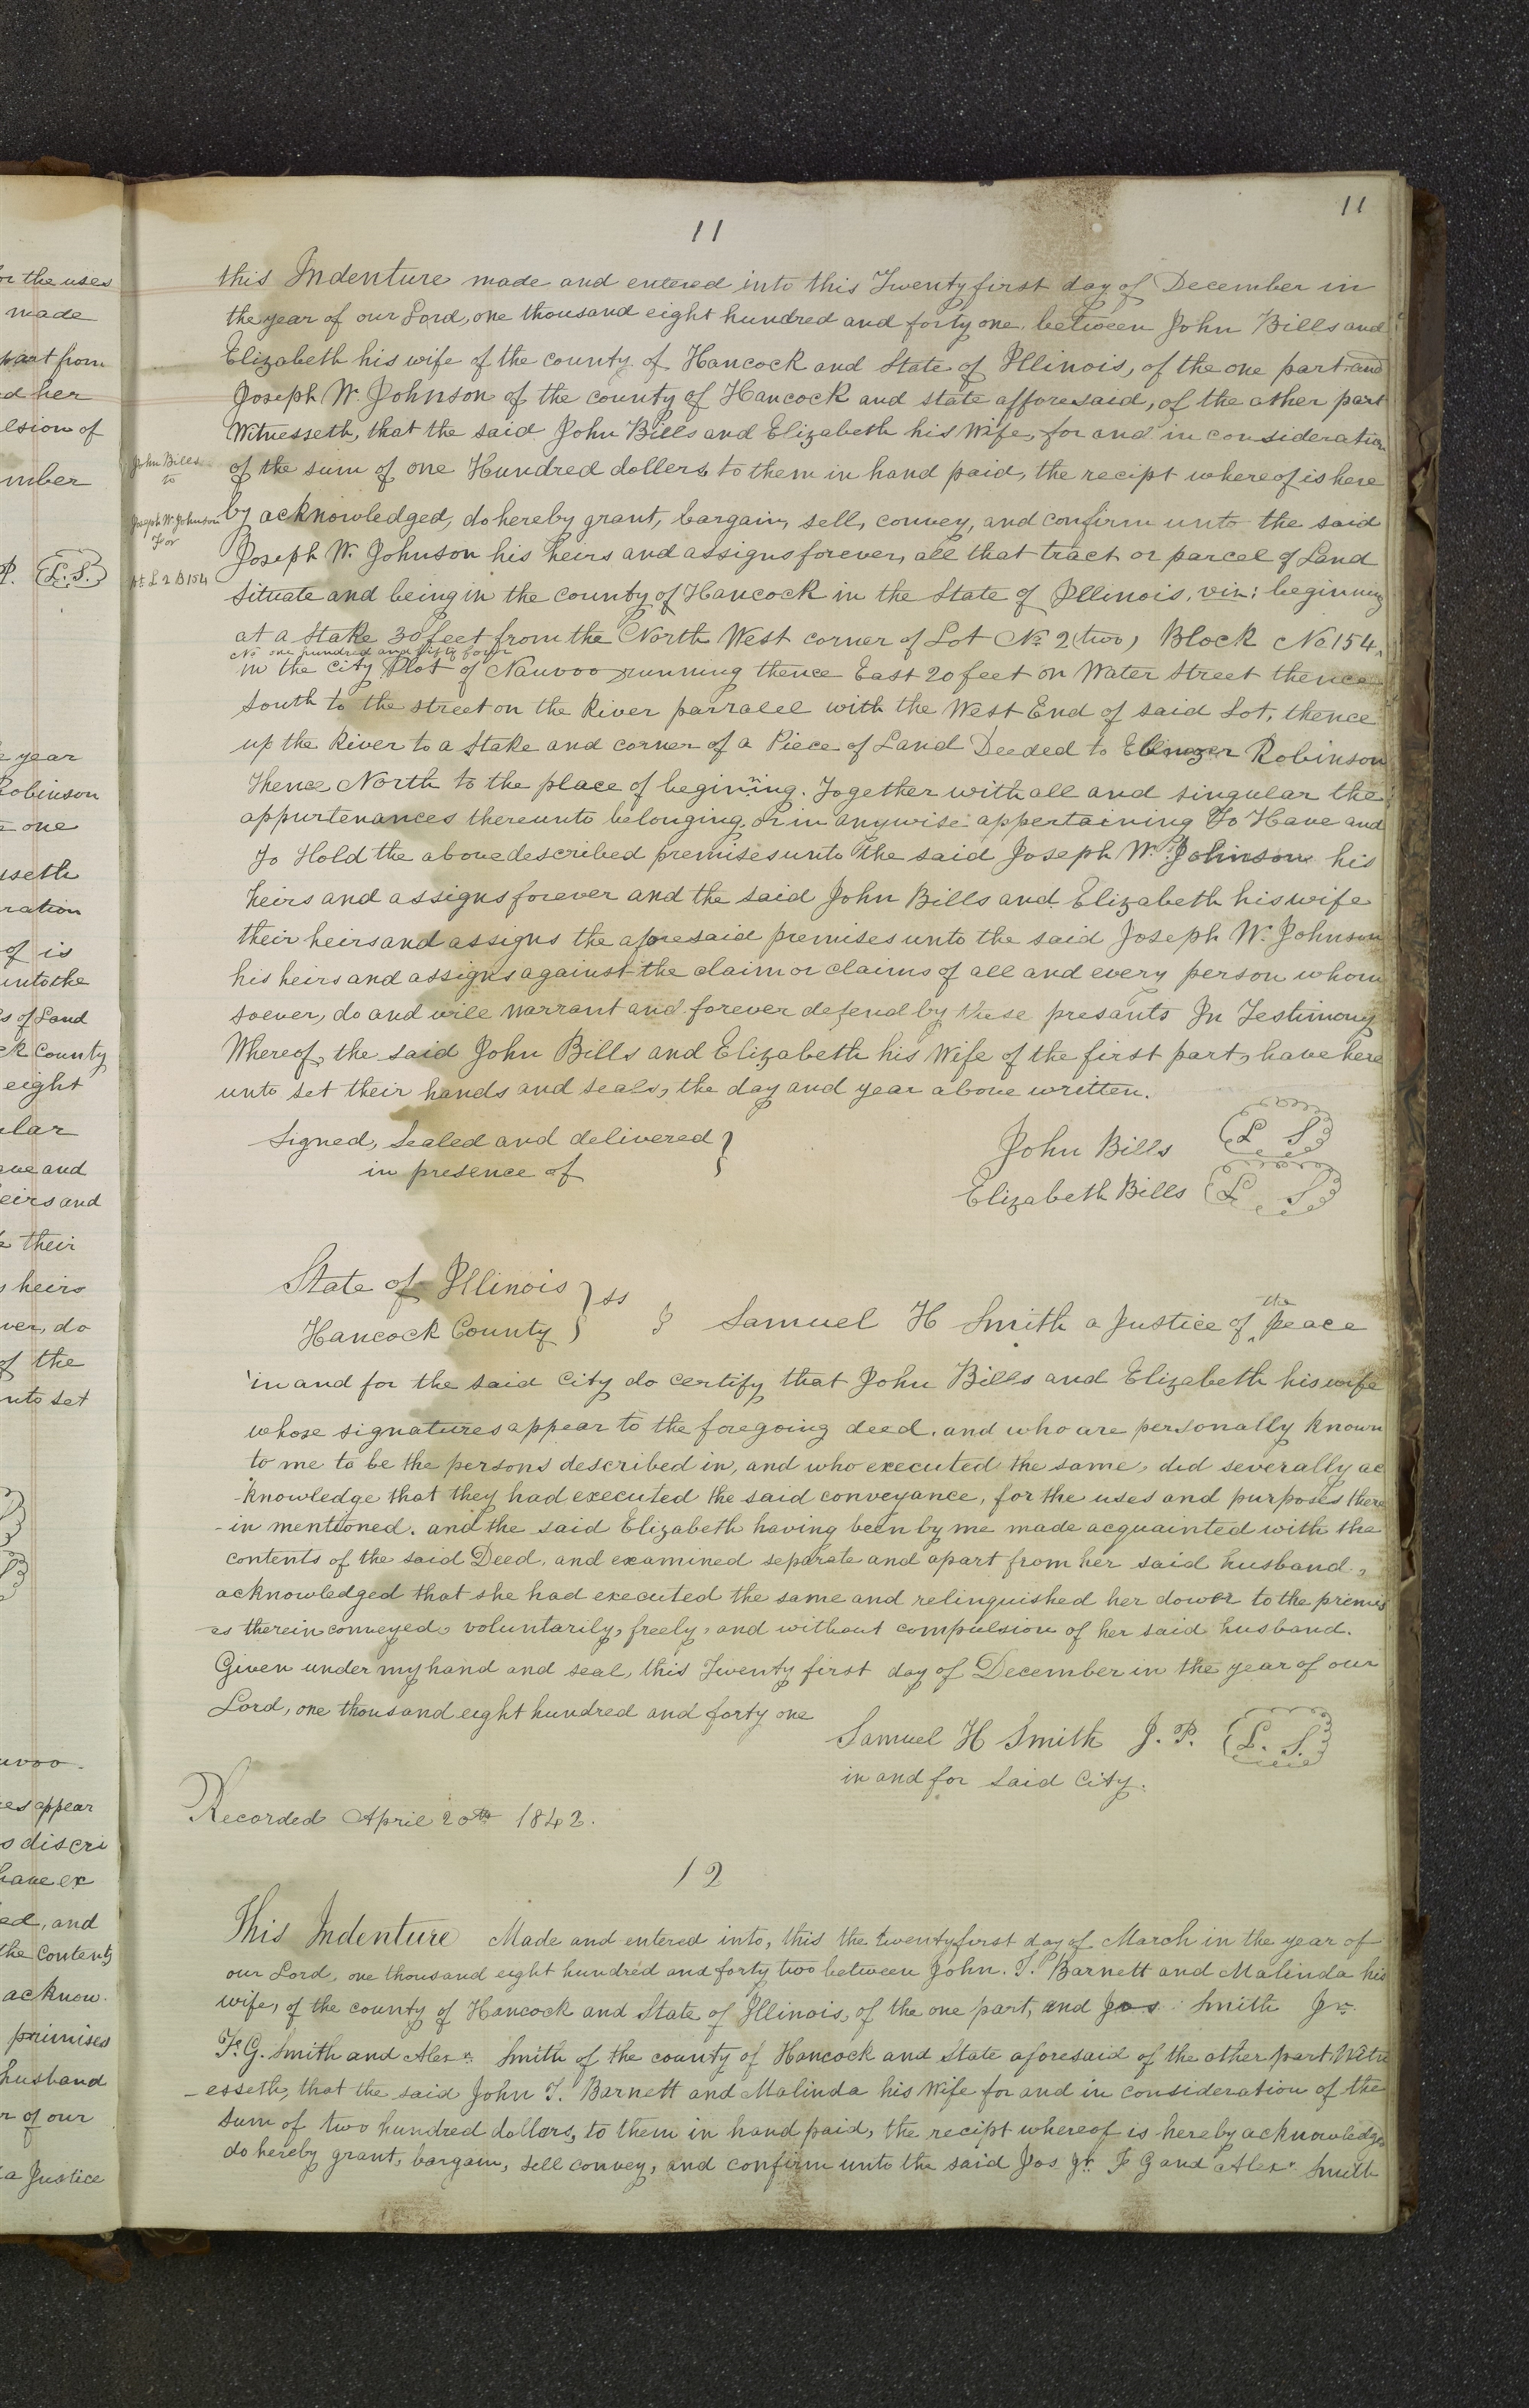 11
11
this Indenture made and entered into this Twenty first day of December in
the year of our Lord, one thousand eight hundred and forty one, between John Bills and
Elizabeth his wife of the county of Hancock and State of Illinois, of the one part and
Joseph W. Johnson of the county of Hancock and state afforesaid, of the other part
Witnesseth, that the said John Bills and Elizabeth his Wife, for and in consideration
of the sum of one Hundred dollers to them in hand paid, the recipt whereof is here
by acknowledged, do hereby grant, bargain, sell, convey, and confirm unto the said
Joseph W. Johnson his heirs and assigns forever, all that tract or parcel of Land
Situate and being in the county of Hancock in the State of Illinois, viz: beginning
at a Stake 30 feet from the North West corner of Lot No. 2 (two) Block No 154,
No one hundred and fifty four
in the city Plot of Nauvoo running thence East 20 feet on Water Street thence
South to the street on the River parralel with the West End of said Lot, thence
up the River to a Stake and corner of a Piece of Land Deeded to Ebenezer Robinson
Thence North to the place of begining. Together with all and singular the
appurtenances thereunto belonging, or in anywise appertaining To Have and
To Hold the above described premises unto the said Joseph W. Johnson his
heirs and assigns forever and the said John Bills and Elizabeth his wife
their heirs and assigns the aforesaid premises unto the said Joseph W. Johnson
his heirs and assigns against the claim or claims of all and every person whom
soever, do and will warrant and forever defend by these presants In Testimony
Whereof, the said John Bills and Elizabeth his Wife of the first part, have here
unto set their hands and seals, the day and year above written.
Signed, Sealed and delivered
in presence of
John Bills L S
Elizabeth Bills L S
State of Illinois
Hancock County } ss I Samuel H Smith a Justice of the peace
in and for the said City do certify that John Bills and Elizabeth his wife
whose signatures appear to the foregoing deed, and who are personally known
to me to be the persons described in, and who executed the same, did severally ac
knowledge that they had executed the said conveyance, for the uses and purposes there
-in mentioned. and the said Elizabeth having been by me made acquainted with the
contents of the said Deed, and examined seperate and apart from her said husband,
acknowledged that she had executed the same and relinquished her dower to the premis
es therein conveyed, voluntarily, freely, and without compulsion of her said husband.
Given under my hand and seal, this Twenty first day of December in the year of our
Lord, one thousand eight hundred and forty one
Samuel H Smith J. P. L. S.
in and for said City.
Recorded April 20th 1842.
12
This Indenture Made and entered into, this the twenty first day of March in the year of
our Lord, one thousand eight hundred and forty two between John. T. Barnett and Malinda his
wife, of the county of Hancock and State of Illinois, of the one part, and Jos Smith Jr.
F. G. Smith and Alexr. Smith of the county of Hancock and State aforesaid of the other part Witn
-esseth, that the said John T. Barnett and Malinda his Wife for and in consideration of the
sum of two hundred dollars, to them in hand paid, the recipt whereof is hereby acknowledge
do hereby grant, bargain, sell convey, and confirm unto the said Jos Jr. F G and Alexr Smith
John Bills
to
Joseph W. Johnson
for
pt L 2 B 154
or the uses
made
part from
d her
lsion of
mber
P. L. S.
year
Robinson
one
sseth
ration
of is
unto the
s of Land
ck County
eight
ular
ave and
eirs and
their
heirs
ver, do
of the
unto set
uvoo
es appear
s discri
have ex
ed, and
the contents
acknow
primises
husband
r of our
a Justice